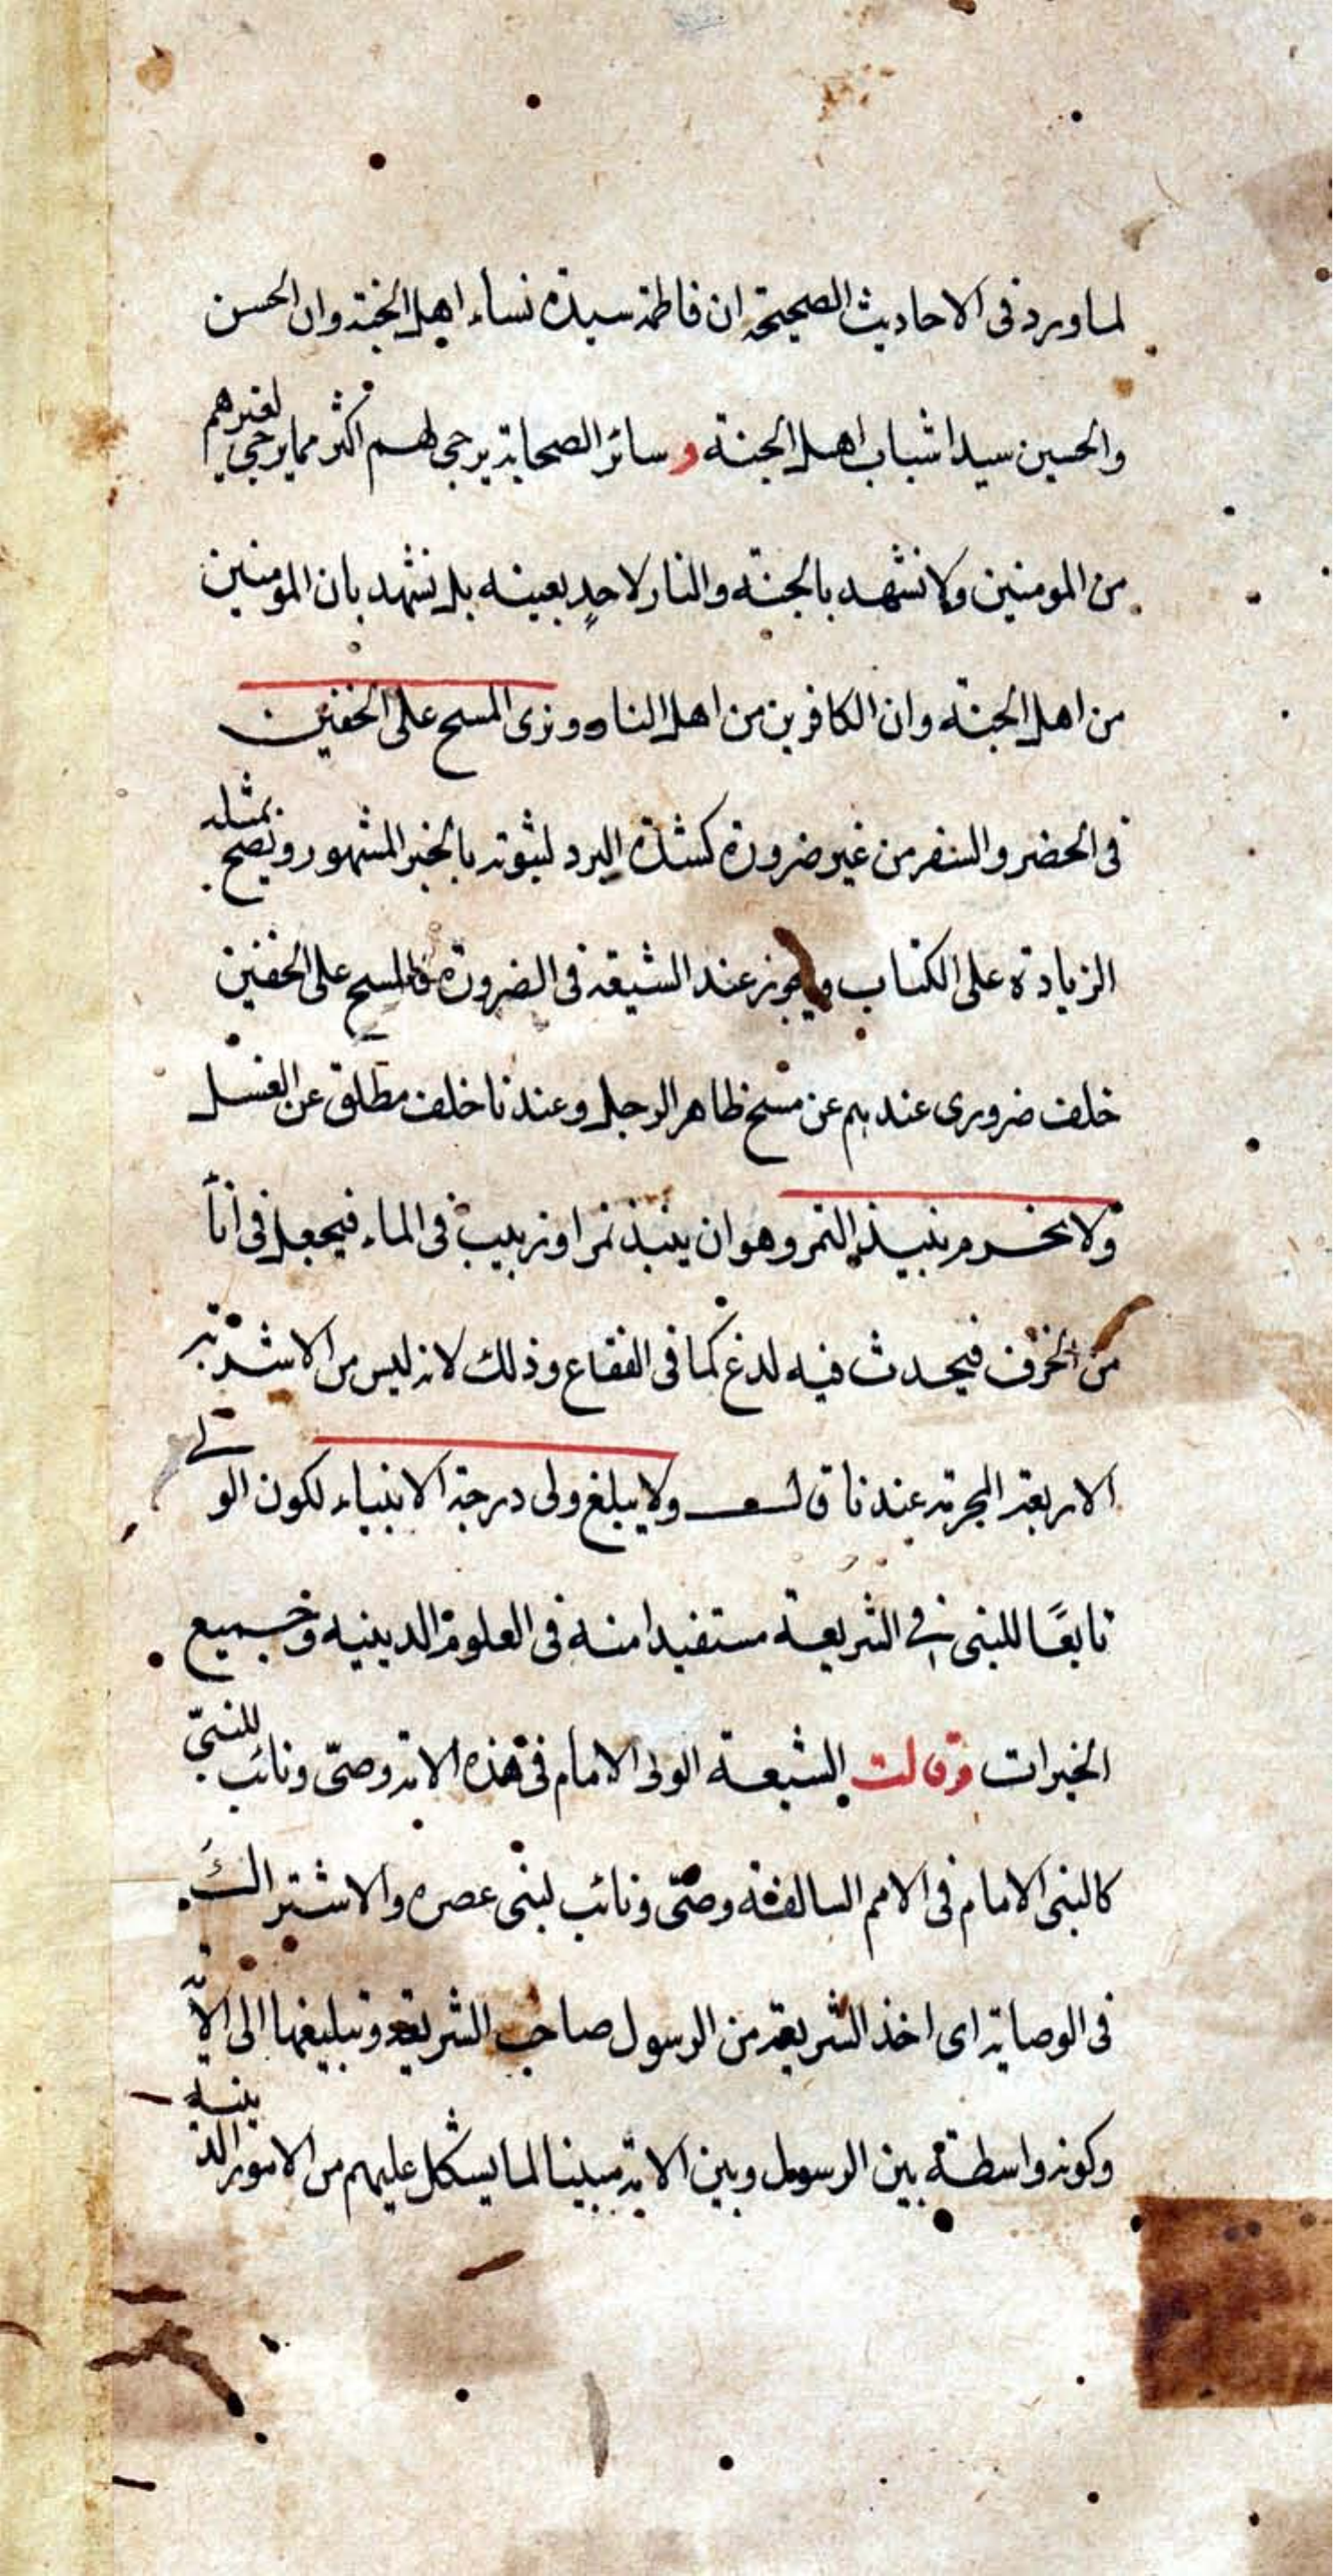 لما ورد فى الاحاديث الصحيحة ان فاطمة سيدة نساء اهل الجنة وان الحسن
والحسين سيدا شباب اهل الجنة و سائر الصحابة يرجى لهم اكثر مما يرجى لغيرهم
من المومنين ولا نشهد بالجنة والنار لاحدٍ بعينه بل نشهد بان المومنين
من اهل الجنة وان الكافرين من اهل النار ونرى المسح على الخفين
فى الحضر والسفر من غير ضرورة كشدة البرد لثبوته بالخبر المشهور ويصح بمثله
الزيادة على الكتاب ويجوز عند الشيعة فى الضرورة فالمسح على الخفين
خلف ضرورى عندهم عن مسح ظاهر الرجل وعندنا خلف مطلق عن الغسل
ولا نحرم نبيذ التمر وهو ان ينبذ تمر او زبيب فى الماء فيجعل فى اناء
من الخزف فيحدث فيه لدغ كما فى الفقاع وذلك لانه ليس من الاشربة
الاربعة المحرمة عندنا ولا يبلغ ولى درجة الانبياء لكون الولى
تابعًا للنبى فى الشريعة مستفيدا منه فى العلوم الدينيه وجميع
الخيرات وقالت الشيعة الولى الامام فى هذه الامة وصىّ ونائب للنبىّ
كالنبى الامام فى الامم السالفة وصىّ ونائب لنبى عصره والاشتراك
فى الوصاية اى اخذ الشريعة من الرسول صاحب الشريعة وتبليغها الى الامّة
وكونه واسطة بين الرسول وبين الامة مبينا لما يشكل عليهم من الامور الدينية